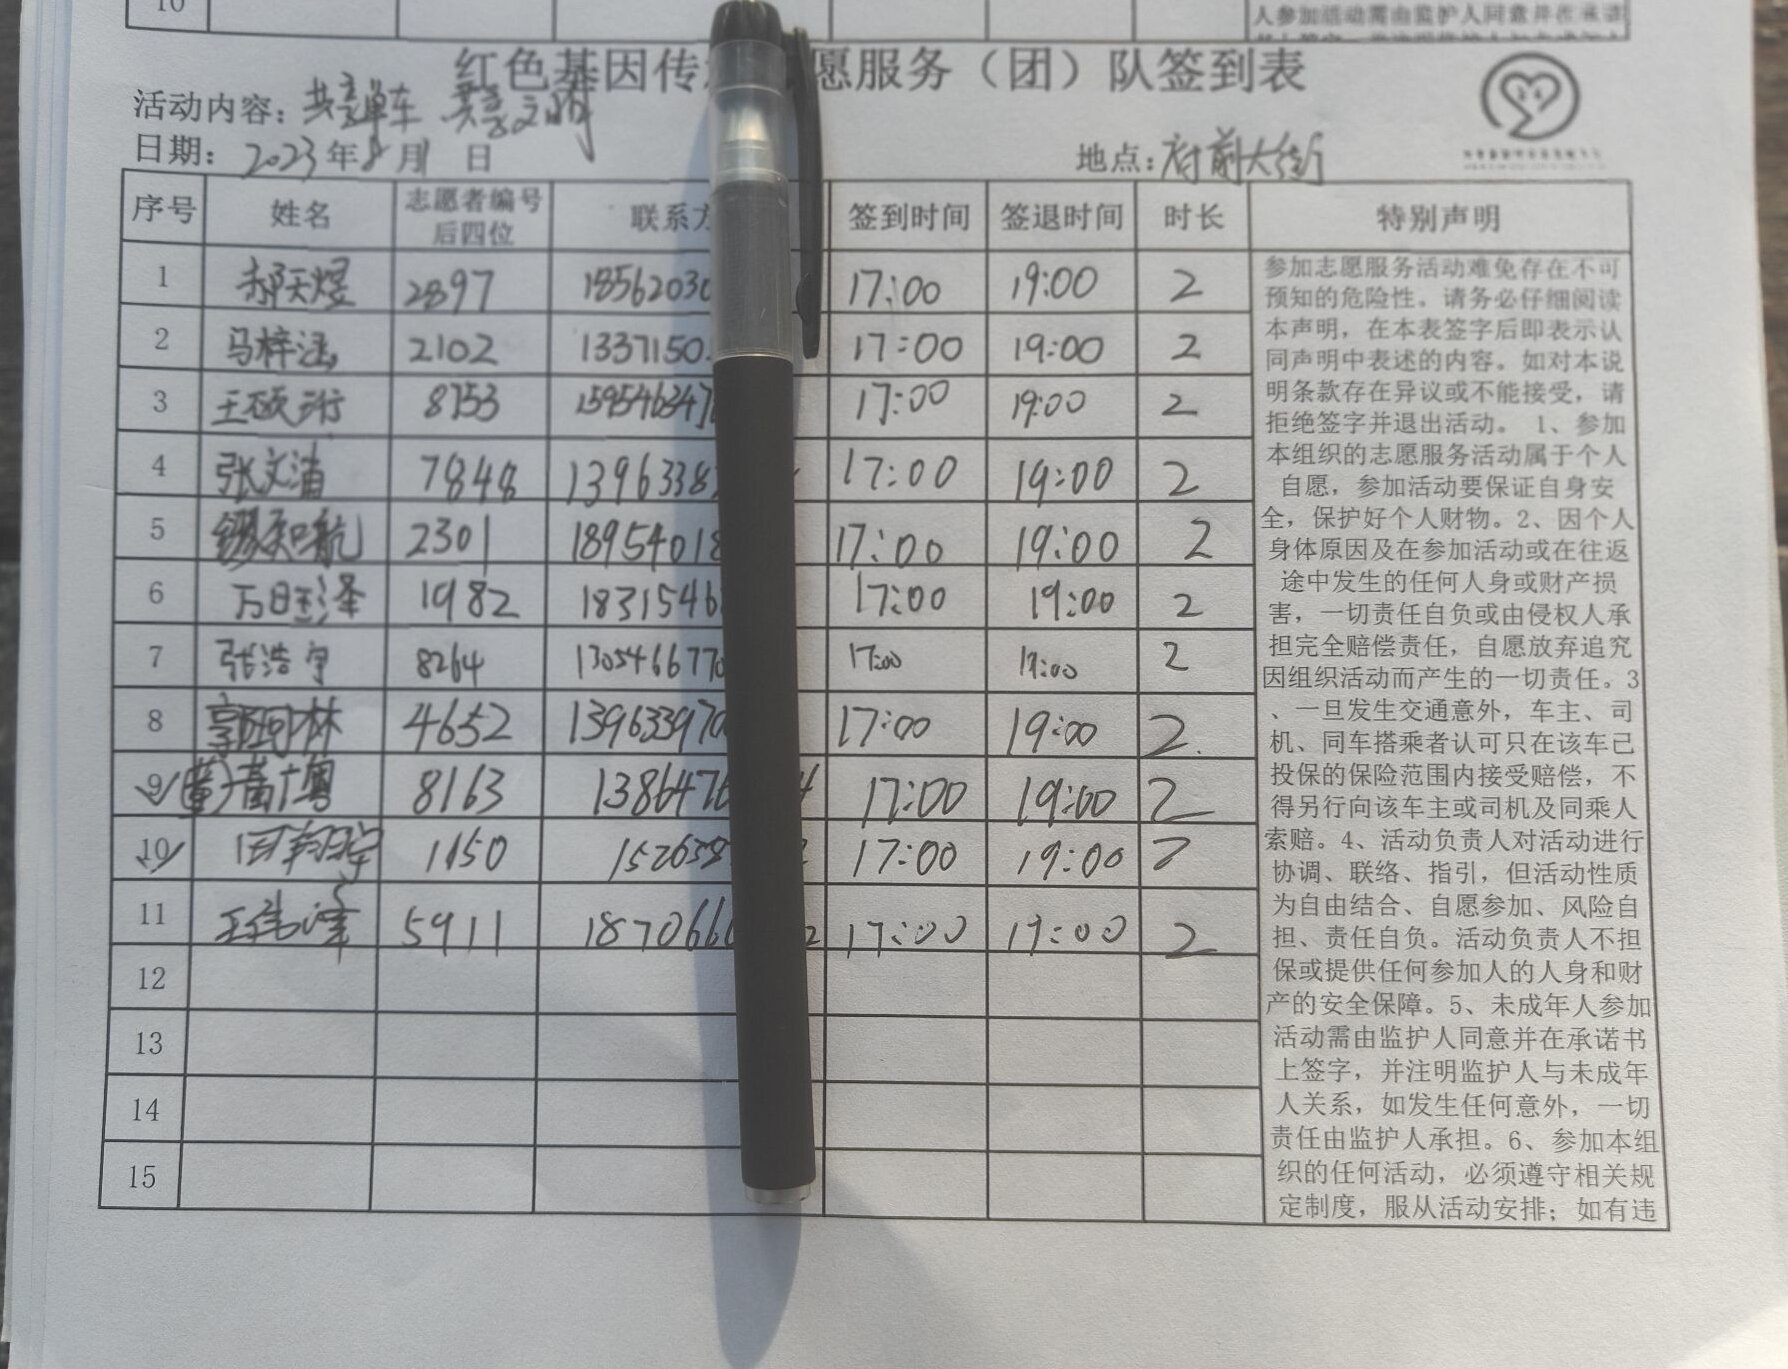 10
人参加活动需由监护人同意并在承诺
红色基因传 愿服务（团）队签到表
活动内容：共享单车 共享文明
日期：2023年8月1日
地点：府前大街
序号 姓名 志愿者编号后四位 联系方 签到时间 签退时间 时长 特别声明
1 郝天煜 2897 18562030 17:00 19:00 2
2 马梓涵 2102 1337150 17:00 19:00 2
3 王硕珩 8753 159546347 17:00 19:00 2
4 张文清 7848 13963383 17:00 19:00 2
5 知航 2301 18954018 17:00 19:00 2
6 万日泽 1982 1831546 17:00 19:00 2
7 张浩宇 8264 1305466770 17:00 19:00 2
8 郭珂林 4652 139633970 17:00 19:00 2
9 8163 1386476 4 17:00 19:00 2
10 1150 152638 17:00 19:00 2
11 王 5911 1870666 2 17:00 19:00 2
12
13
14
15
参加志愿服务活动难免存在不可
预知的危险性。请务必仔细阅读
本声明，在本表签字后即表示认
同声明中表述的内容。如对本说
明条款存在异议或不能接受，请
拒绝签字并退出活动。 1、参加
本组织的志愿服务活动属于个人
自愿，参加活动要保证自身安
全，保护好个人财物。2、因个人
身体原因及在参加活动或在往返
途中发生的任何人身或财产损
害，一切责任自负或由侵权人承
担完全赔偿责任，自愿放弃追究
因组织活动而产生的一切责任。3
、一旦发生交通意外，车主、司
机、同车搭乘者认可只在该车已
投保的保险范围内接受赔偿，不
得另行向该车主或司机及同乘人
索赔。4、活动负责人对活动进行
协调、联络、指引，但活动性质
为自由结合、自愿参加、风险自
担、责任自负。活动负责人不担
保或提供任何参加人的人身和财
产的安全保障。5、未成年人参加
活动需由监护人同意并在承诺书
上签字，并注明监护人与未成年
人关系，如发生任何意外，一切
责任由监护人承担。6、参加本组
织的任何活动，必须遵守相关规
定制度，服从活动安排；如有违